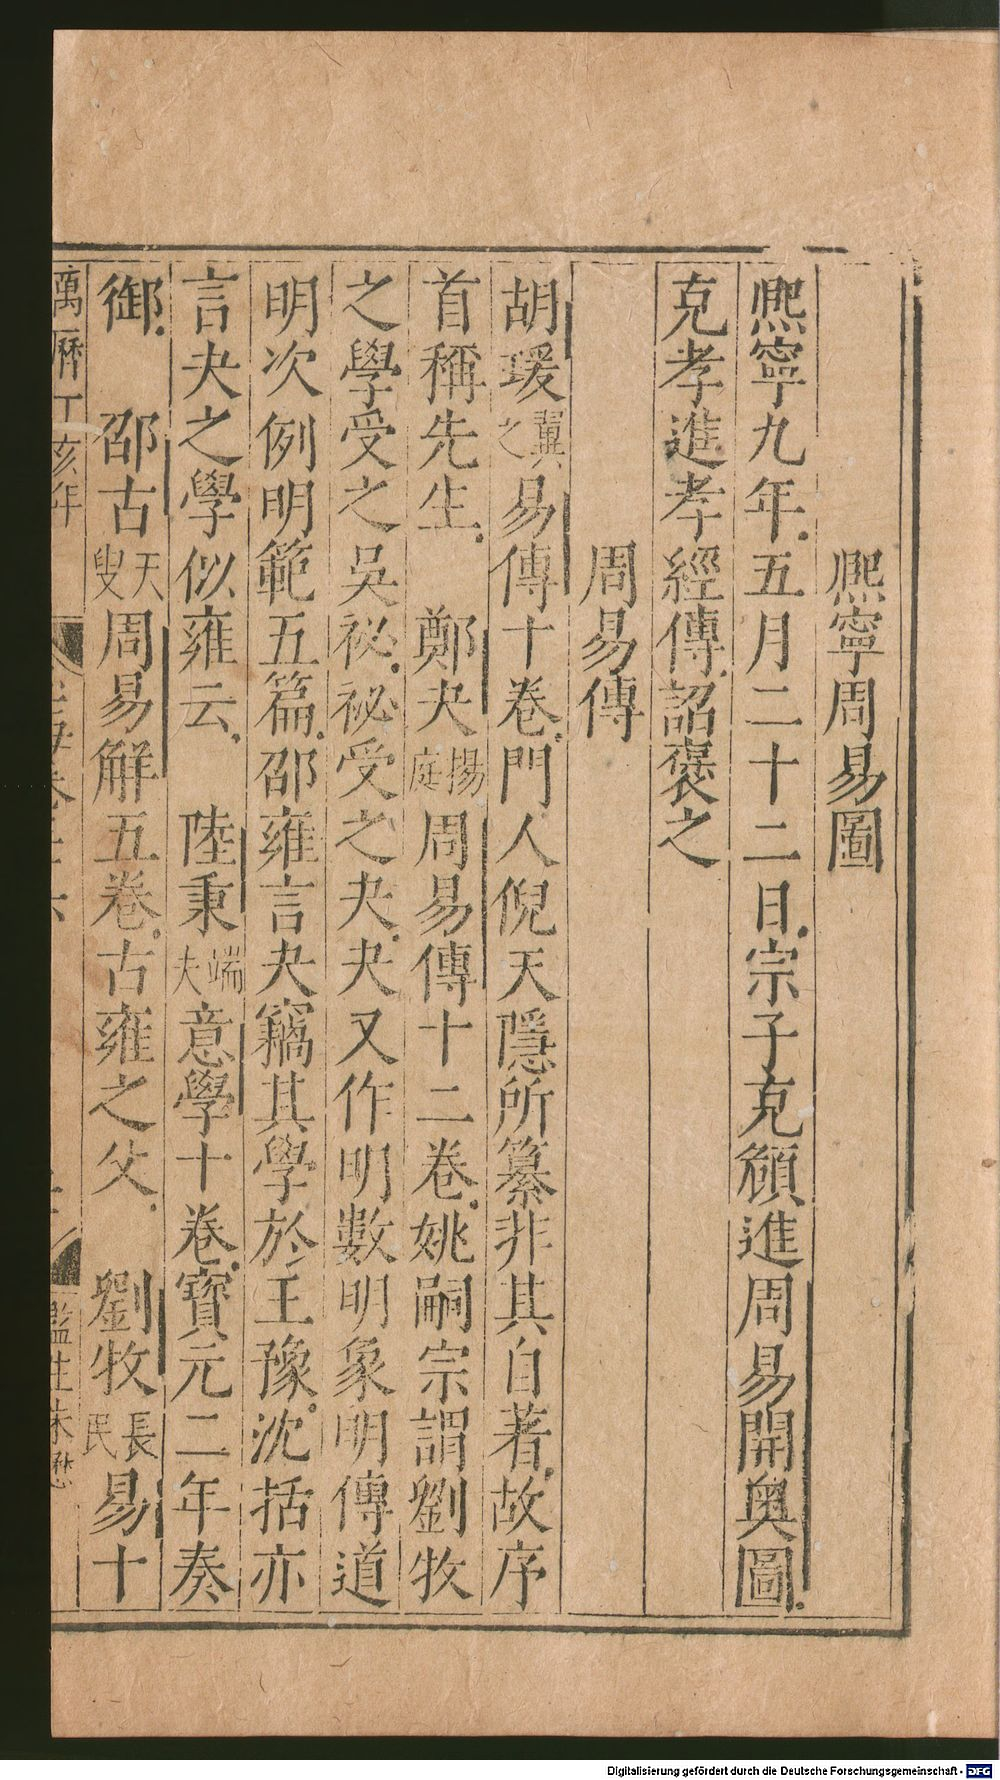 熈寧周易圖
熈寧九年五月二十二日宗子克頎進周易開奥圖
克孝進孝經傳詔褒之
周易傳
胡瑗翼之易傳十卷門人倪天隱所纂非其自著故序
首稱先生 鄭夬揚庭周易傳十二卷姚嗣宗謂劉牧
之學受之吳祕祕受之夬夬又作明數明象明傳道
明次例明範五篇邵雍言夬竊其學於王豫沈括亦
言夬之學似雍云 陸秉端夫意學十卷寶元二年奏
御 邵古天叟周易解五卷古雍之父 劉牧長民易十
萬曆丁亥年 玉海卷三十六 監生朱懋
Digitalisierung gefördert durch die Deutsche Forschungsgemeinschaft - DFG